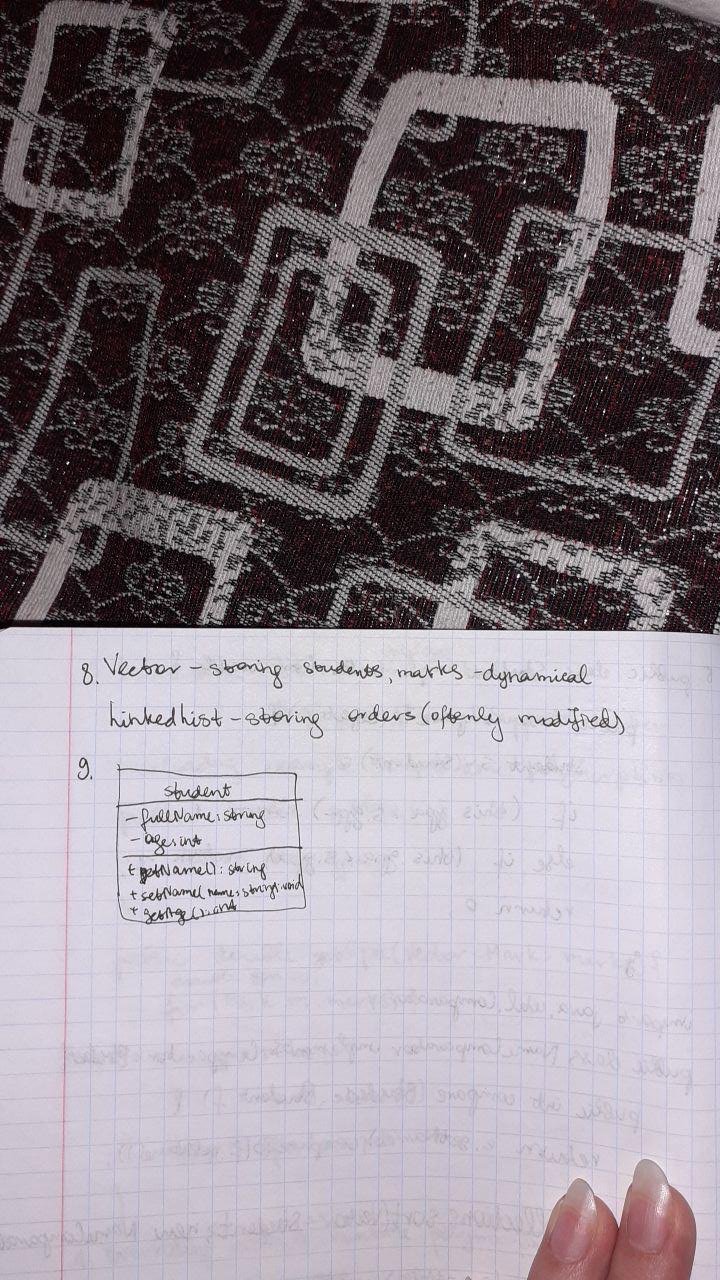 8. Vector - storing students, marks - dynamical
Linked List - storing orders (oftenly modified)
9.
Student
- fullName: string
- age: int
+ getName(): string
+ setName(name: string): void
+ getAge(): int